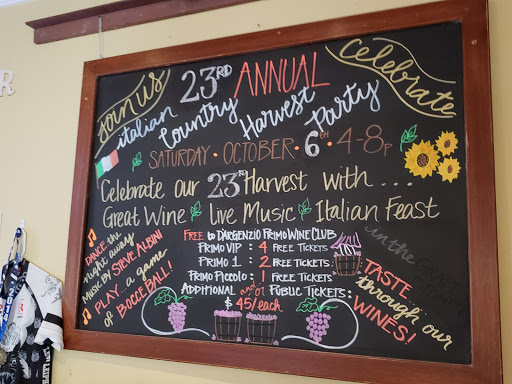 R
Join us
Celebrate
23RD ANNUAL
Italian Country Harvest Party
SATURDAY • OCTOBER • 6th • 4-8P
Celebrate our 23rd Harvest with....
Great Wine Live Music Italian Feast
DANCE the
night away
MUSIC BY STEVE ALBINI
PLAY a game
of BOCCE BALL!
FREE to D'ARGENZIO PRIMO WINE CLUB
PRIMO VIP : 4 FREE TICKETS
PRIMO 1 : 2 FREE TICKETS
PRIMO PICCOLO : 1 FREE TICKETS
ADDITIONAL and/or PUBLIC TICKETS:
$45/each
in the
TASTE...
through our
WINES!